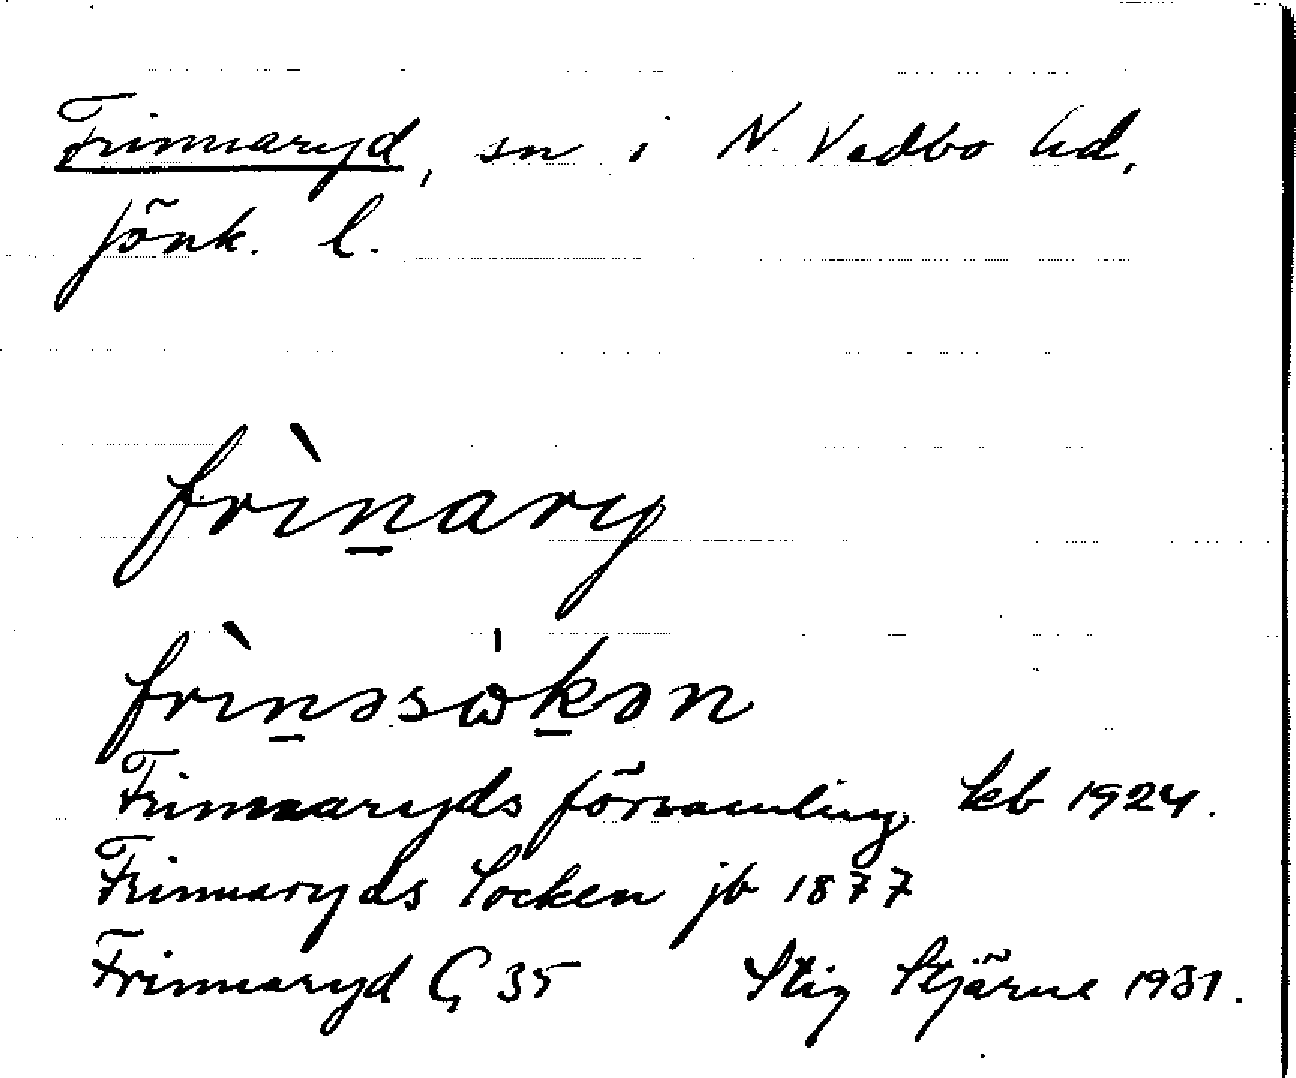 Frinnaryd, sn i N. Vedbo hd,
Jönk. l.
frìnary
frìnəsωkən
Frinnaryds församling kb 1924.
Frinnaryds Socken jb 1877
Frinnaryd G 35 Stig Stjärne 1931.